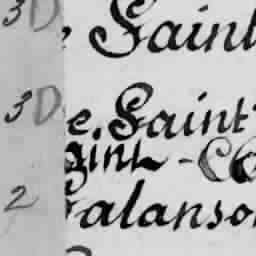 3D, Saint
3D e. Saint
aint - Co
2 alanso